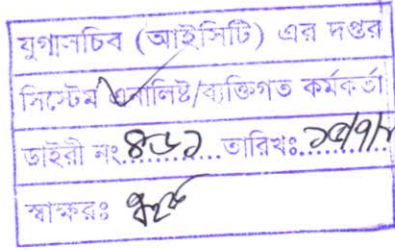 যুগ্মসচিব (আইসিটি) এর দপ্তর
সিস্টেম এনালিষ্ট/ব্যক্তিগত কর্মকর্তা
ডাইরী নং.৪৬১......তারিখঃ
স্বাক্ষরঃ